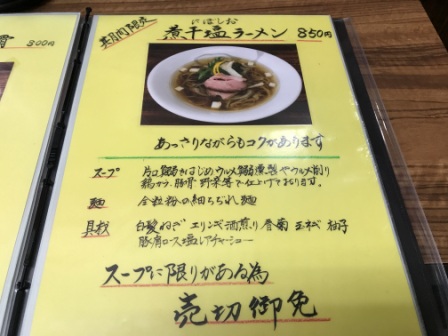 期間限定
にぼしお
煮干塩ラーメン 850円
800円
あっさりながらもコクがあります
スープ 片口鰯をはじめウルメ鰯煮干やウルメ削り
鶏ガラ、豚骨、野菜等で仕上げてあります。
麺 全粒粉の細ちぢれ麺
具材 白髪ねぎ エリンギ酒煎り 春菊 玉ねぎ 柚子
豚肩ロース塩レアチャーシュー
スープに限りがある為
売切御免